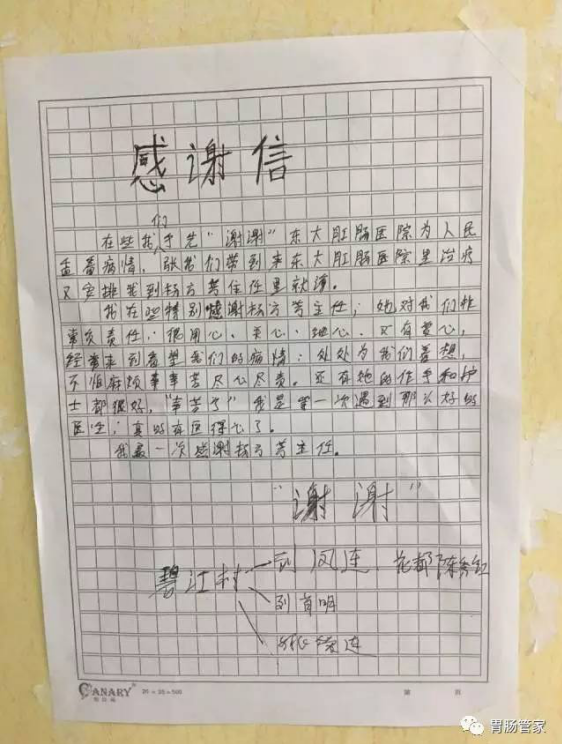 感谢信
们
在些我于先"谢谢"东大肛肠医院为人民
查看病情,张我们带到来东大肛肠医院里治疗
又安排我到杨方芳住任里就读。
我在些特别感谢杨方芳主任;她对我们非
常负责任:很用心、关心、细心、又有爱心,
经常来到看望我们的病情:处处为我们着想,
不怕麻烦事事苦尽心尽责。还有她的作手和护
士都很好,"幸苦了"我是第一次遇到那么好的
医生;真的在医得心了。
我最一次感谢杨方芳主任。
"谢谢"
碧江村 刘凤连 花都陈
刘首明
连
CANARY 20×20=400
第 页
胃肠管家